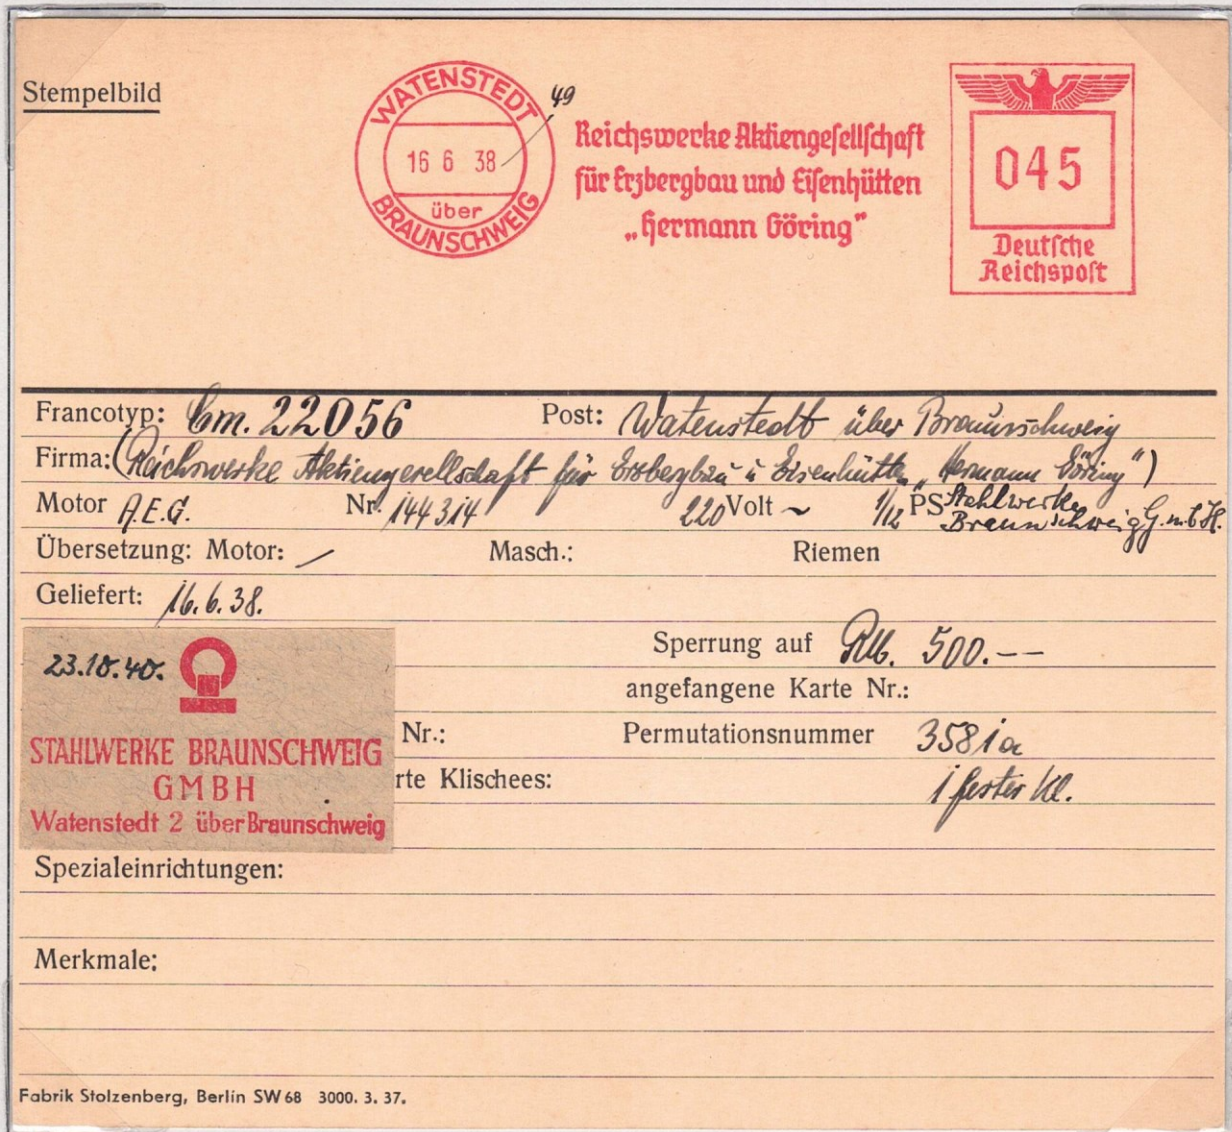 Stempelbild
WATENSTEDT
49
16 6 38
über
BRAUNSCHWEIG
Reichswerke Aktiengesellschaft
für Erzbergbau und Eisenhütten
„Hermann Göring"
045
Deutsche
Reichspost
Francotyp: Cm. 22056 Post: Watenstedt über Braunschweig
Firma: (Reichswerke Aktiengesellschaft für Erzbergbau u Eisenhütten „Hermann Göring")
Motor A.E.G. Nr. 144314 220 Volt ~ 1/12 PS Stahlwerke
Braunschweig G.m.b.H.
Übersetzung: Motor: / Masch.: Riemen
Geliefert: 16.6.38.
23.10.40.
Sperrung auf RM. 500.--
angefangene Karte Nr.:
Nr.: Permutationsnummer 3581a
STAHLWERKE BRAUNSCHWEIG
GMBH
Watenstedt 2 über Braunschweig
rte Klischees: 1 fester Kl.
Spezialeinrichtungen:
Merkmale:
Fabrik Stolzenberg, Berlin SW 68 3000. 3. 37.